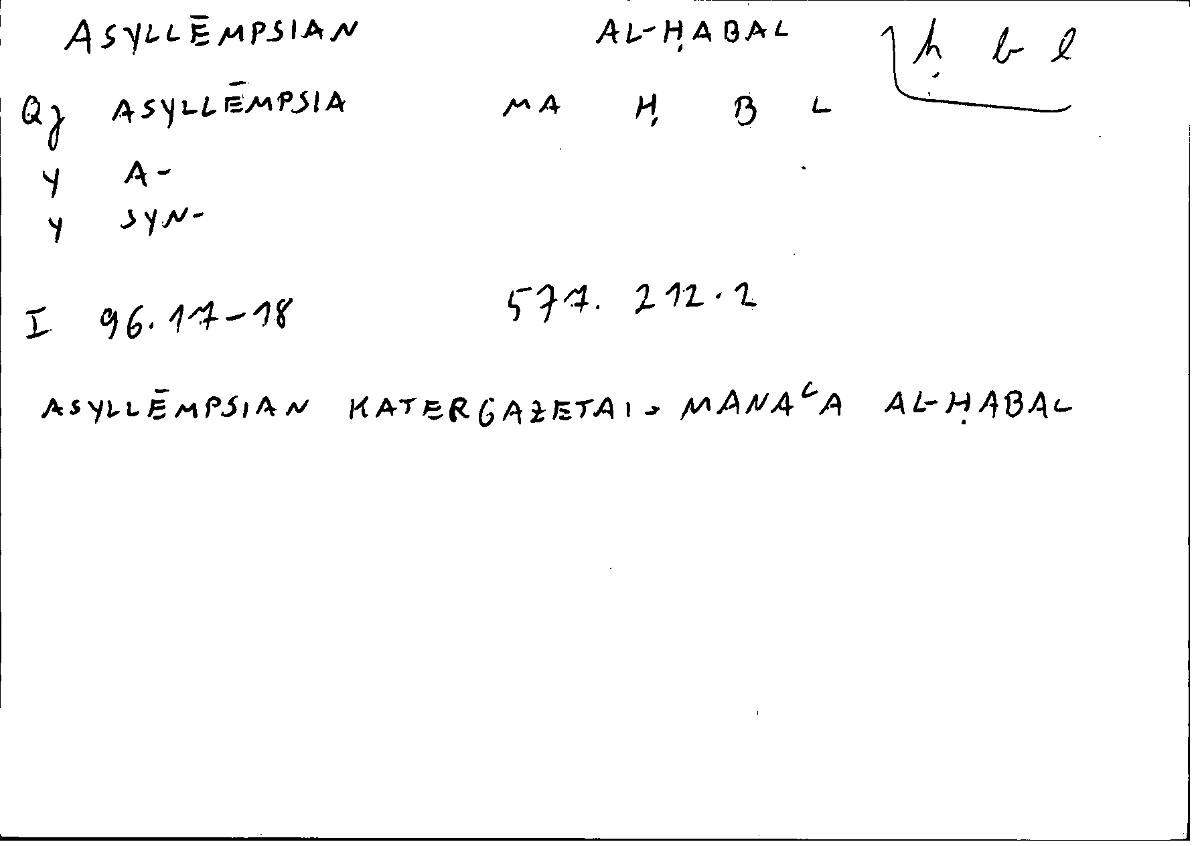 ASYLLĒMPSIAN AL-ḤABAL ḥ b l
Qj ASYLLĒMPSIA MA Ḥ B L
y A-
y SYN-
I 96.17-18 577. 212.2
ASYLLĒMPSIAN KATERGAZETAI > MANAʿA AL-ḤABAL